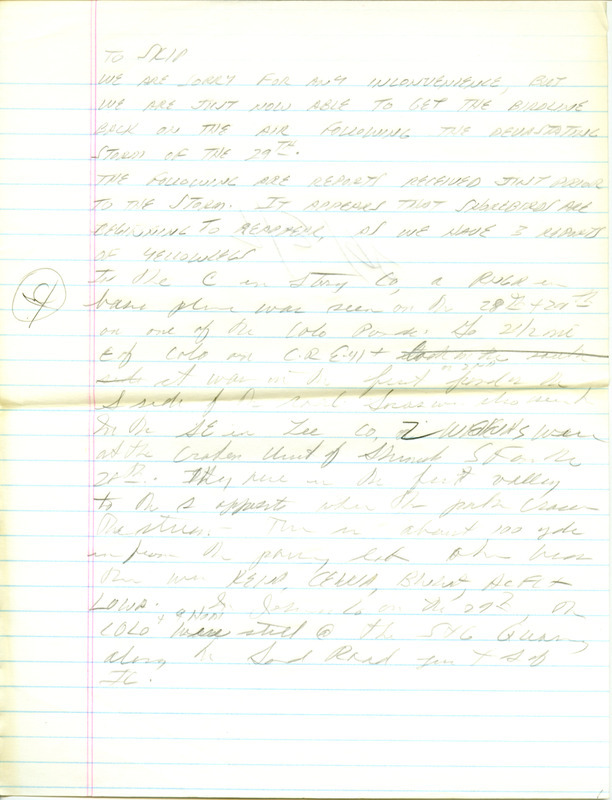 TO SKIP
WE ARE SORRY FOR ANY INCONVENIENCE, BUT
WE ARE JUST NOW ABLE TO GET THE BIRDLINE
BACK ON THE AIR FOLLOWING THE DEVASTATING
STORM OF THE 29TH.
THE FOLLOWING ARE REPORTS RECEIVED JUST PRIOR
TO THE STORM. IT APPEARS THAT SHOREBIRDS ARE
BEGINNING TO REAPPEAR, AS WE HAVE 3 REPORTS
OF YELLOWLEGS
In the C in Story Co, a in
basic plum was seen on the 28th + 29th
on one of the Colo Ponds. Go 2 1/2 mi
E of Colo on C.R. E-41 +
it was in the first pond on the
S side of the road
In the SE in Lee Co, 2 were
at the Croton Unit of Shimek S.F. on the
28th. They were in the first valley
to the S opposite where the path crosses
the stream. This is about 100 yds
in from the parking lot. Other birds
there were KEWA, CEWA, AcFl +
LOWA. In Johnson Co on the 29th, the
COLO were still @ the S+G Quarry
along the Sand Road just S of
IC.